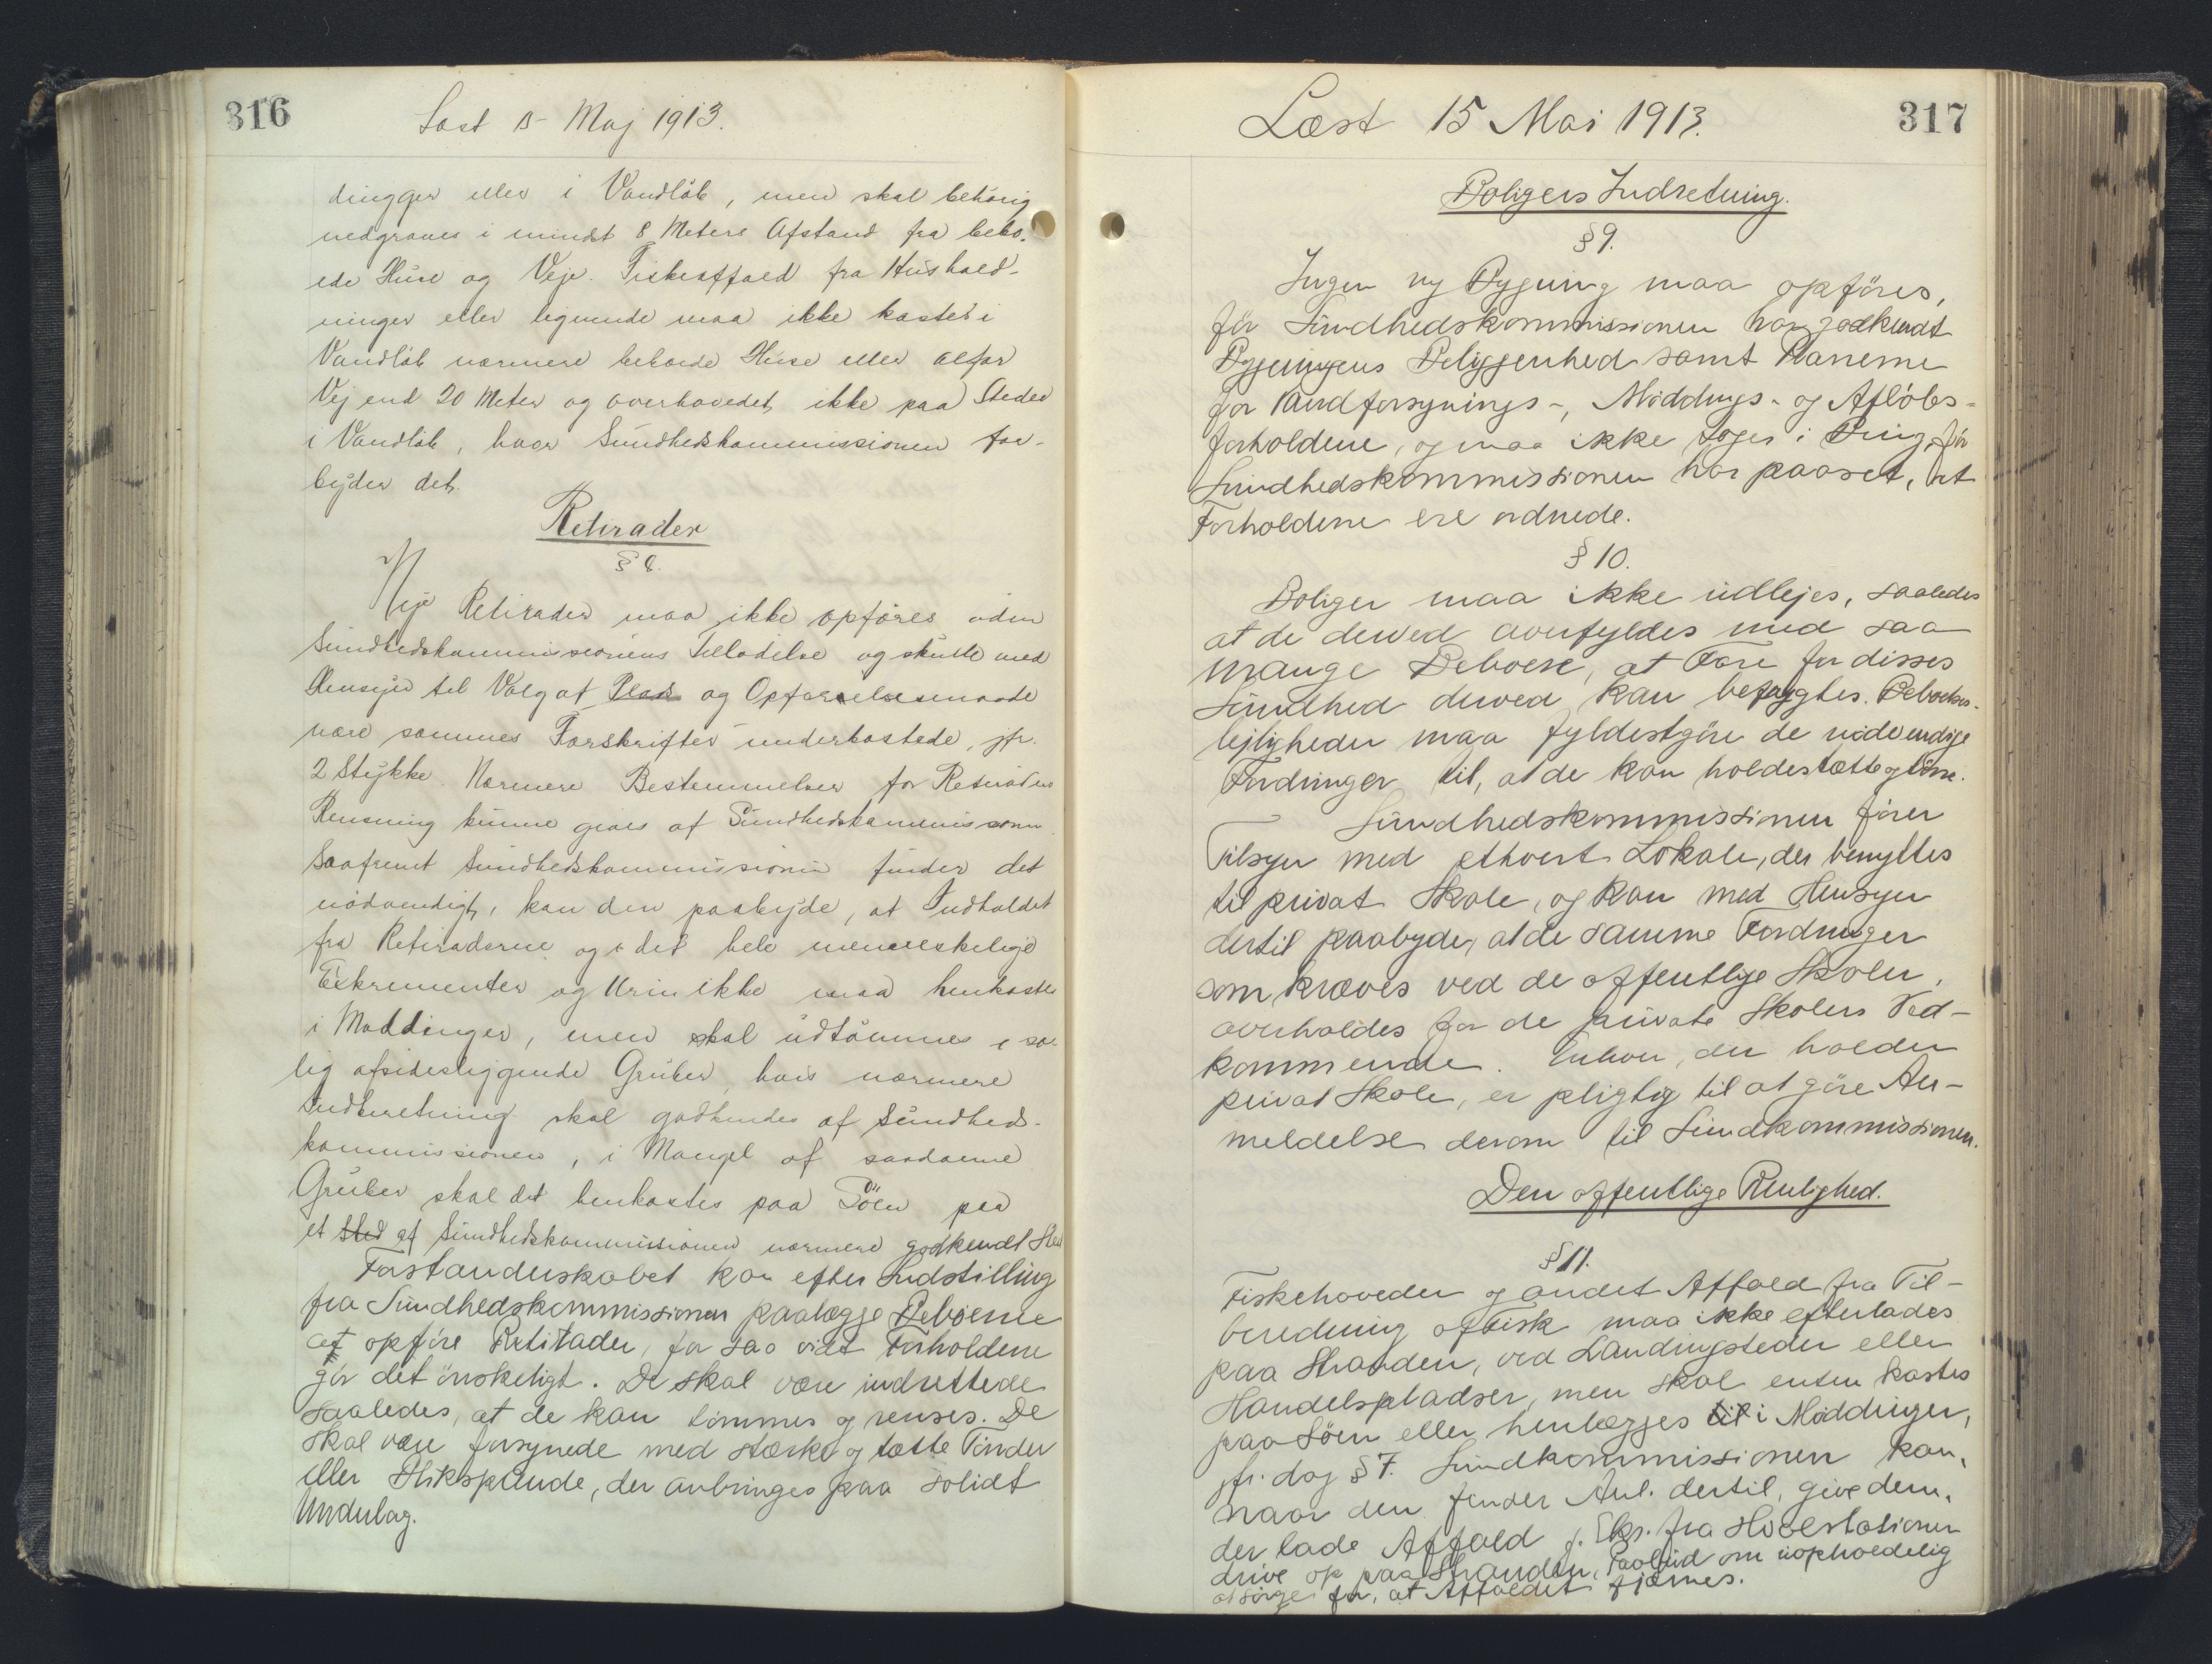 316
Læst 15 Maj 1913.
dingger eller i Vandløb, men skal behørig
nedgraves i mindst 8 Meters Afstand fra bebo-
ede Huse og Veje. Fiskeaffald fra Hushold-
ninger eller lignende maa ikke kastes i
Vandløb nærmere beboede Huse eller alfar
Vej end 20 Meter og overhovedet ikke paa Steder
i Vandløb, hvor Sundhedskommissionen for-
byder det.
Retirader
§ 8.
Nye Retirader maa ikke opføres uden
Sundhedskommissionens Tilladelse og skulle med
Hensyn til Valg af Plads og Opførelsesmaade
være sammes Forskrifter underkastede, jfr.
2 Stykke. Nærmere Bestemmelser for Retiraders
Rensning kunne gives af Sundhedskommissionen
Saafremt Sundhedskommissionen finder det
nødvendigt, kan den paabyde, at Indholdet
fra Retiraderne og i det hele menneskelige
Exkrementer og Urin ikke maa henkastes
i Møddinger, men skal udtømmes i sær-
lig afsidesliggende Gruber, hvis nærmere
Indretning skal godkendes af Sundheds-
kommissionen, i Mangel af saadanne
Gruber skal det henkastes paa Søen paa
et Sted af Sundhedskommissionen nærmere godkendt Sted
Forstanderskabet kan efter Indstilling
fra Sundhedskommissionen paalægge Beboerne
at opføre Retirader, for saa vidt Forholdene
gør det ønskeligt. De skal være indrettede
saaledes, at de kan tømmes og renses. De
skal være forsynede med stærke og tætte Tønder
eller Stikspande, der anbringes paa solidt
Underlag.
317
Læst 15 Mai 1913.
Boligers Indretning.
§ 9.
Ingen ny Bygning maa opføres,
før Sundhedskommissionen har godkendt
Bygningens Beliggenhed samt Planerne
for Vandforsynings-, Møddings- og Afløbs-
forholdene, og maa ikke tages i Brug, før
Sundhedskommissionen har paaset, at
Forholdene ere ordnede.
§ 10.
Boliger maa ikke udlejes, saaledes
at de derved overfyldes med saa
mange Beboere, at Fare for disses
Sundhed derved kan befrygtes. Beboelses-
lejligheder maa fyldestgøre de nødvendige
Fordringer til, at de kan holdes tætte og tørre.
Sundhedskommissionen fører
Tilsyn med ethvert Lokale, der benyttes
til privat Skole, og kan med Hensyn
dertil paabyde, at de samme Fordringer
som kræves ved de offentlige Skoler,
overholdes for de private Skolers Ved-
kommende. Enhver, der holder
privat Skole, er pligtig til at gøre An-
meldelse derom til Sundkommissionen.
Den offentlige Renlighed.
§ 11.
Fiskehoveder og andet Affald fra Til-
beredning af Fisk maa ikke efterlades
paa Stranden, ved Landingsteder eller
Handelspladser, men skal enten kastes
paa Søen eller henlægges til i Møddinger,
jfr. dog § 7. Sundkommissionen kan,
naar den finder Anl. dertil, give dem,
der lade Affald f. Eks. fra Hvalstationer
drive op paa Stranden, Paabud om uopholdelig
at sørge for, at Affaldet fjærnes.